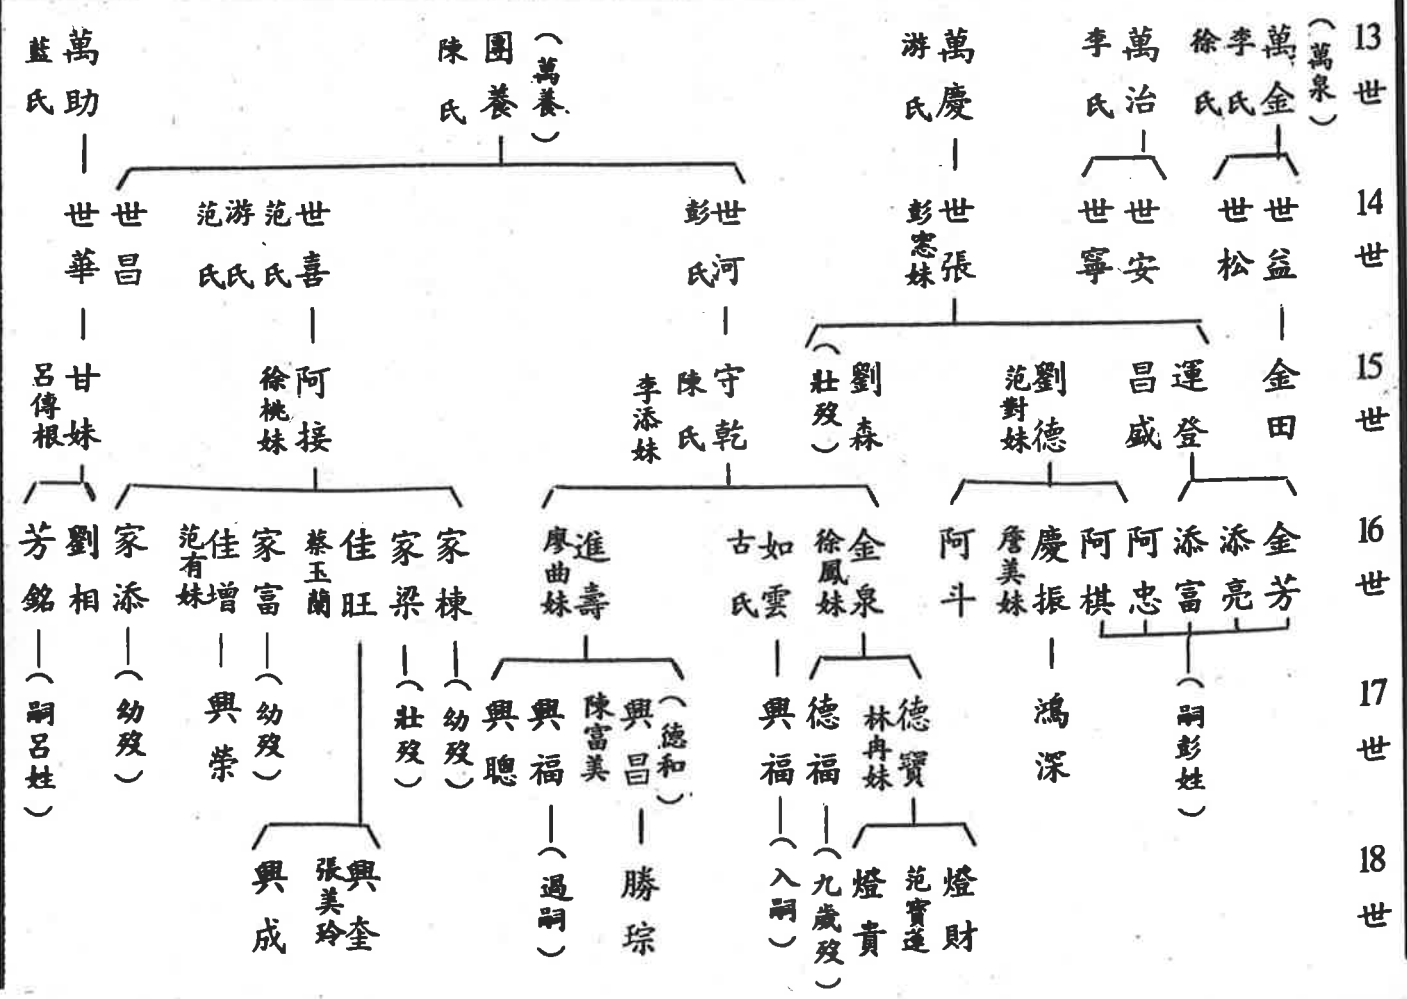 13世
(萬泉)
萬金
李氏
徐氏
萬治
李氏
萬慶
游氏
(萬養)
團養
陳氏
萬助
藍氏
14世
世益
世松
世安
世寧
世張
彭窓妹
世河
彭氏
世喜
范氏
游氏
范氏
世昌
世華
15世
金田
運登
昌盛
劉德
范對妹
劉森
(壯歿)
守乾
陳氏
李添妹
阿接
徐桃妹
甘妹
呂傳根
16世
金芳
添亮
添富
阿忠
阿棋
慶振
詹美妹
阿斗
金泉
徐鳳妹
如雲
古氏
進壽
廖曲妹
家棟
家梁
佳旺
蔡玉蘭
家富
佳增
范有妹
家添
劉相
芳銘
17世
(嗣彭姓)
鴻深
德寶
林冉妹
德福
興福
(德和)
興昌
陳富美
興福
興聰
(幼歿)
(壯歿)
(幼歿)
興榮
(幼歿)
(嗣呂姓)
18世
燈財
范寶蓮
燈貴
(九歲歿)
(入嗣)
勝琮
(過嗣)
興奎
張美玲
興成